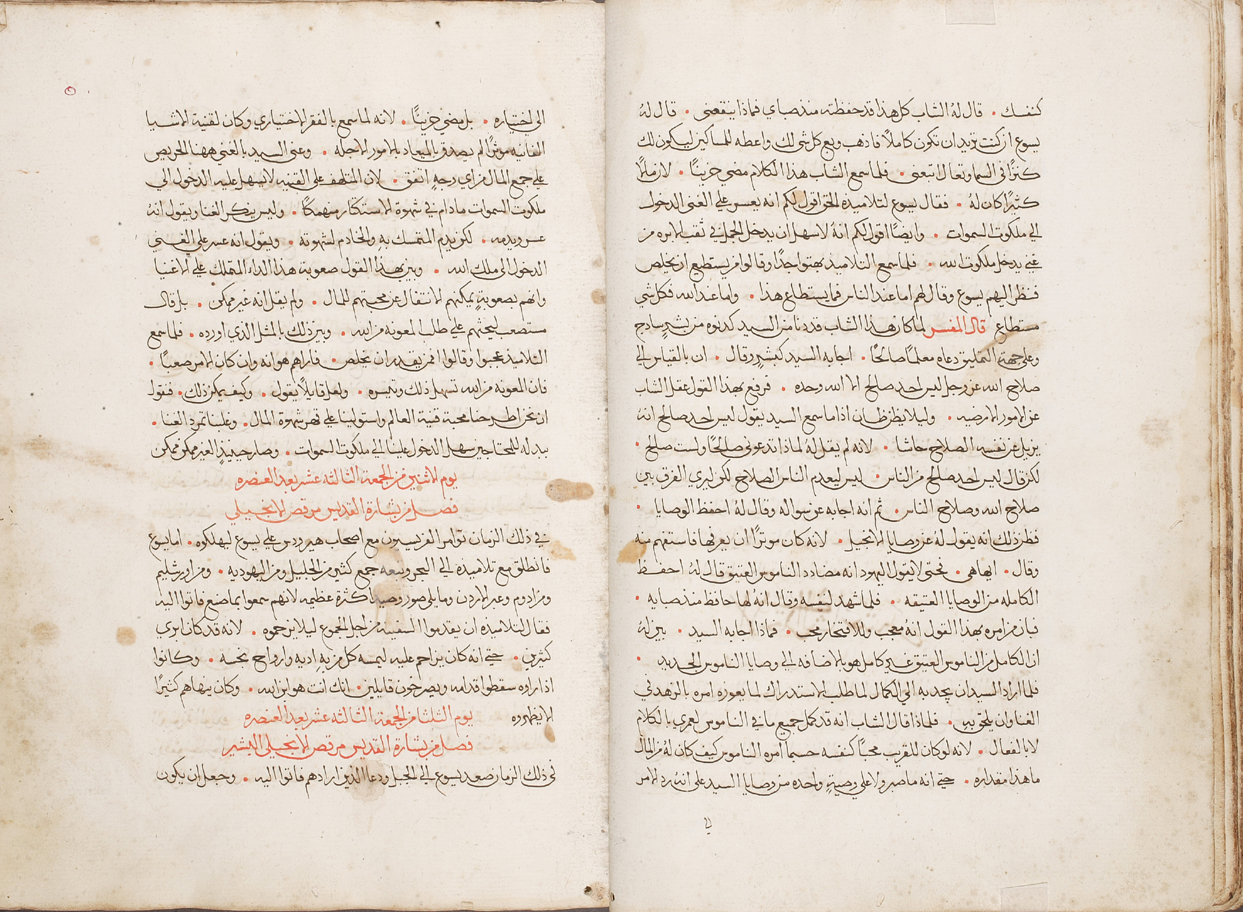 كنفسك • قال له الشاب كل هذا قد حفظته منذ صباي فماذا ينقصني • قال له
يسوع ان كنت تريد ان تكون كاملًا فاذهب وبع كل شي لك واعطه للمساكين ليكون لك
كنزًا في السما وتعال اتبعني • فلما سمع الشاب هذا الكلام مضي حزينًا • لان مالًا
كثيرًا كان له • فقال يسوع لتلاميذه الحق اقول لكم انه يعسر علي الغني الدخول
الي ملكوت السموات • وايضًا اقول لكم انه لاسهل ان يدخل الجمل في ثقب الابره من
غني يدخل ملكوت الله • فلما سمع التلاميذ بهتوا جدًا وقالوا من يستطيع ان يخلص
فنظر اليهم يسوع وقال لهم اما عند الناس فما يستطاع هذا • واما عند الله فكل شي
مستطاع قال المفسر لما كان هذا الشاب قد دنا من السيد كدنوه من بشرٍ ساذج
وعلي جهة التمليق دعاه معلمًا صالحًا • اجابه السيد كبشر وقال • ان بالقياس الي
صلاح الله عز وجل ليس احد صالح الا الله وحده • فرفع بهذا القول عقل الشاب
عن الامور الارضيه • وليلا يظن ظان اذا ما سمع السيد يقول ليس احد صالح انه
يزيل عن نفسه الصلاح حاشا • لانه لم يقل له لماذا تدعوني صالحًا ولست صالح •
لكن قال ليس احد صالح من الناس • ليس ليعدم الناس الصلاح لكن ليري الفرق بين
صلاح الله وصلاح الناس • ثم انه اجابه عن سواله وقال له احفظ الوصايا •
فظن ذلك انه يقول له عن وصايا الانجيل • لانه كان موثرًا ان يعرفها فاستفهم منه
وقال • ايما هي • فحتي لا يقول اليهود انه مضادد الناموس العتيق قال له احفظ
الكامله من الوصايا العتيقه • فلما شهد لنفسه وقال انه لها حافظ منذ صبايه •
فبان من امره بهذا القول انه معجب وللافتخار محب • فماذا اجابه السيد • بين له
ان الكامل من الناموس العتيق غير كامل هو بالاضافه الي وصايا الناموس الجديد •
فلما اراد السيد ان يجذبه الي الكمال لما طلب الاستدراك لما يعوزه امره بالزهد في
الغنا وان للمحوجين • فلماذا قال الشاب انه قد كمل جميع ما في الناموس لعمري بالكلام
لا بالفعال • لانه لو كان للقريب محبًا كنفسه حسبما امره الناموس كيف كان له من المال
ما هذا مقداره • حتي انه ما صبر ولا علي وصيةٍ واحده من وصايا السيد علي انه رد الامر
الي اختياره • بل مضي حزينًا • لانه لما سمع بالفقر الاختياري وكان لقنية الاشيا
الفانيه موثرًا لم يصدق بالميعاد بالامور الاجله • وعني السيد بالغني ههنا الحريص
علي جمع المال من اي وجهٍ اتفق • لان المتلهف علي القنيه لا يسهل عليه الدخول الي
ملكوت السموات ما دام في شهوة الاستكثار منهمكًا • وليس ينكر الغنا ويقول انه
عسر ويذمه • لكن يذم المتمسك به والخادم لشهوته • ويقول انه عسر علي الغني
الدخول الي ملك الله • وبين بهذا القول صعوبة هذا الداء المتملك علي الاغنيا
وانهم بصعوبةٍ يمكنهم الانتقال عن محبتهم للمال • ولم يقل انه غير ممكن • بل قال
مستصعب ليحثهم علي طلب المعونه من الله • وبين ذلك بالمثل الذي اورده • فلما سمع
التلاميذ عجبوا وقالوا فمن يقدر ان يخلص • فاراهم هو انه وان كان الامر صعبًا •
فان المعونه من الله تسهل ذلك وتيسره • ولعل قايلًا يقول • وكيف يمكن ذلك • فنقول
ان نحن اطرحنا محبة قنية العالم واستولينا علي قهر شهوة المال • وعلمنا تمود الغنا •
بدله للمحتاجين سهل الدخول علينا الي ملكوت السموات • وصار حينيذٍ الغير ممكن ممكن
يوم الاثنين من الجمعة الثالثه عشر بعد العنصره
فصل من بشارة القديس مرقص الانجيلي
في ذلك الزمان توامر الفريسيون مع اصحاب هيرودس علي يسوع ليهلكوه • اما يسوع
فانطلق مع تلاميذه الي البحر وتبعه جمع كثير من الجليل ومن اليهوديه • ومن اورشليم
ومن ادوم وعبر الاردن وما يلي صور وصيدا كثرة عظيمه لانهم سمعوا بما صنع فاتوا اليه
فقال لتلاميذه ان يقدموا السفينه من اجل الجموع ليلا يزحموه • لانه قد كان ابري
كثيرين • حتي انه كان يزاحم عليه ليمسه كل من به اذيه وارواح نجسه • وكانوا
اذا راوه سقطوا قدامه ويصرخون قايلين • انك انت هو ابن الله • وكان ينهاهم كثيرًا
الا يظهروه يوم الثلثا من الجمعة الثالثه عشر بعد العنصره
فصل من بشارة القديس مرقص الانجيلي البشير
في ذلك الزمان صعد يسوع الي الجبل ودعا الذين ارادهم فاتوا اليه • وجعل ان يكون